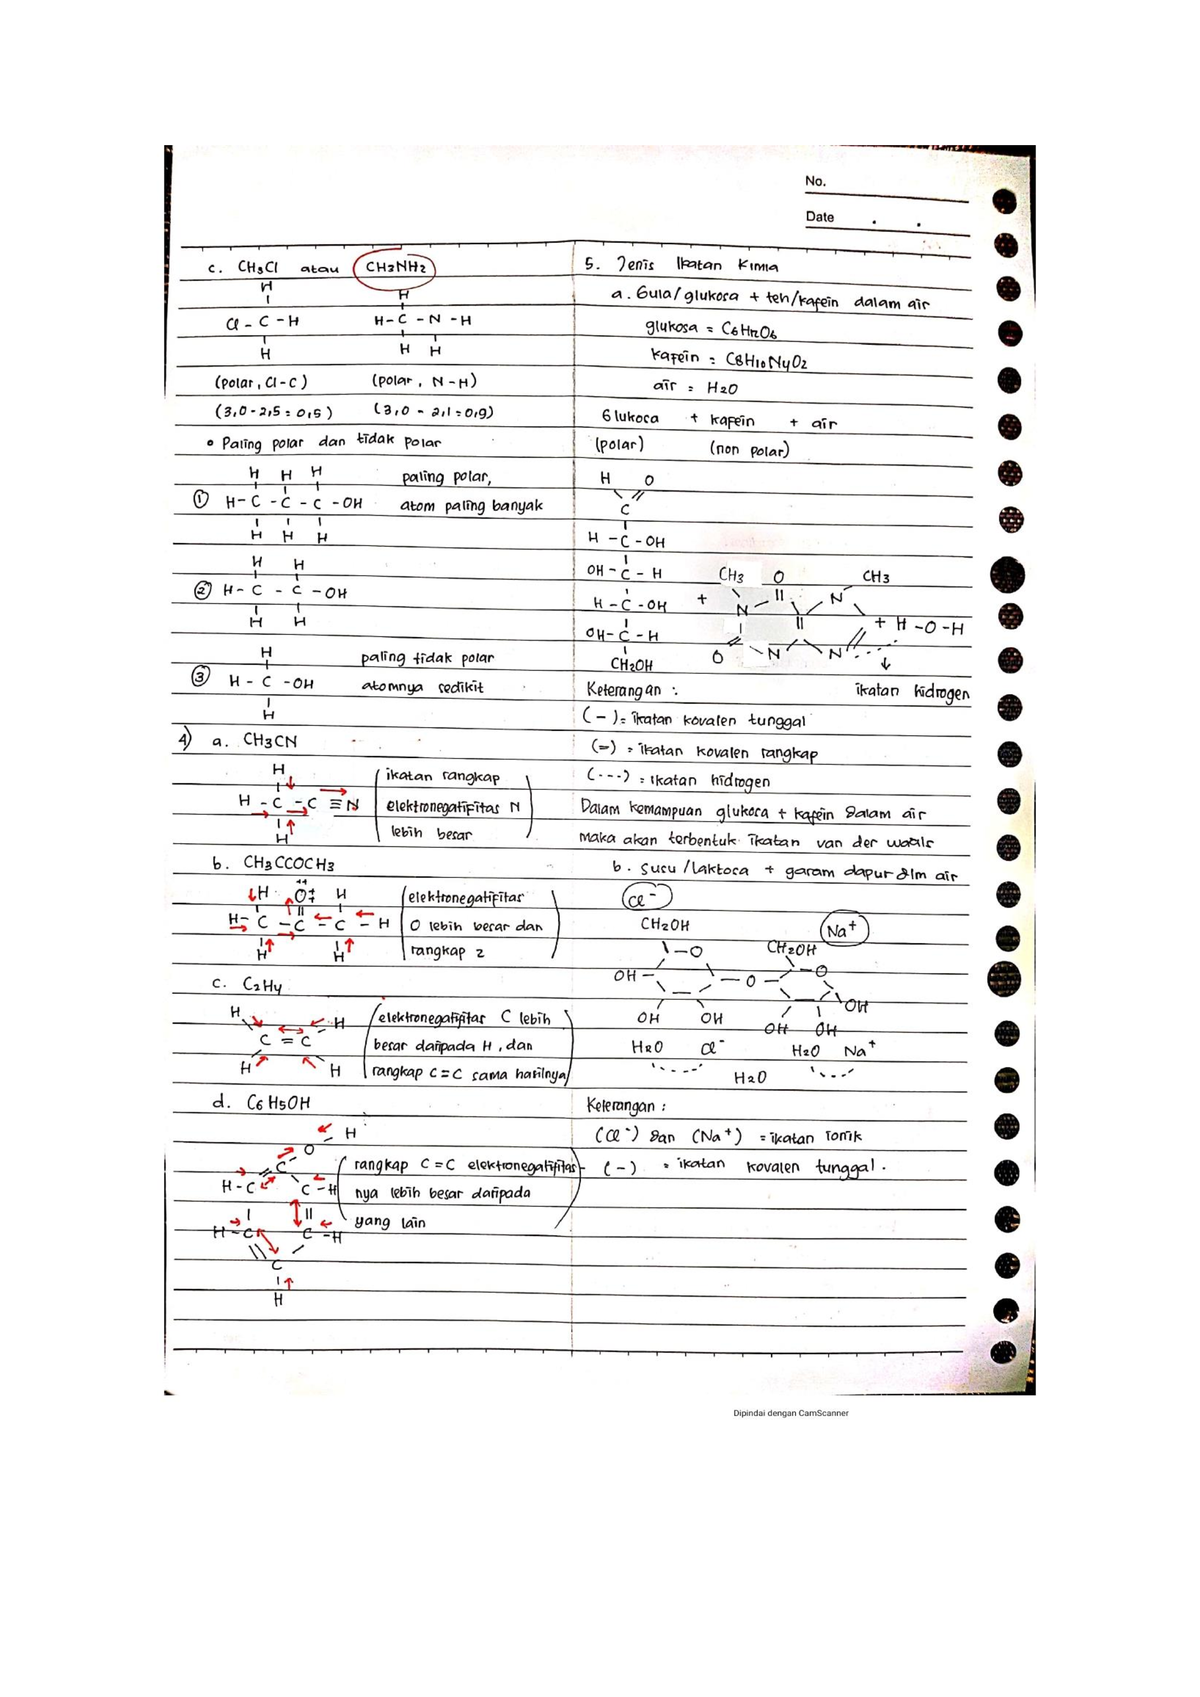 No.
Date . .
c. CH3Cl atau CH3NH2
H H
Cl - C - H H - C - N - H
H H H
(polar, Cl-C) (polar, N-H)
(3,0-2,5=0,5) (3,0 - 2,1=0,9)
• Paling polar dan tidak polar
H H H paling polar,
① H- C - C - C - OH atom paling banyak
H H H
H H
② H- C - C - OH
H H
H paling tidak polar
③ H - C - OH atomnya sedikit
H
4) a. CH3CN
H ikatan rangkap
H - C - C ≡ N elektronegatifitas N
H lebih besar
b. CH3CCOCH3
H O H elektronegatifitas
H- C - C - C - H O lebih besar dan
H H rangkap 2
c. C2H4
H H elektronegatifitas C lebih
C = C besar daripada H, dan
H H rangkap C=C sama hasilnya
d. C6H5OH
H
O
C rangkap C=C elektronegatifitas-
H-C C-H nya lebih besar daripada
yang lain
H-C C-H
C
H
5. Jenis Ikatan Kimia
a. Gula/glukosa + teh/kafein dalam air
glukosa = C6H12O6
kafein = C8H10N4O2
air = H2O
Glukosa + kafein + air
(polar) (non polar)
H O
C
H - C - OH
OH - C - H CH3 O CH3
H - C - OH + N N
OH- C - H + H - O - H
CH2OH O N N
Keterangan : ikatan hidrogen
( - ) = ikatan kovalen tunggal
(=) = ikatan kovalen rangkap
(---) = ikatan hidrogen
Dalam kemampuan glukosa + kafein dalam air
maka akan terbentuk ikatan van der waals
b. susu /laktosa + garam dapur dlm air
Cl-
CH2OH Na+
O CH2OH
OH O O
OH OH OH
OH OH
H2O Cl- H2O Na+
H2O
Keterangan :
(Cl-) dan (Na+) = ikatan ionik
(-) = ikatan kovalen tunggal.
Dipindai dengan CamScanner